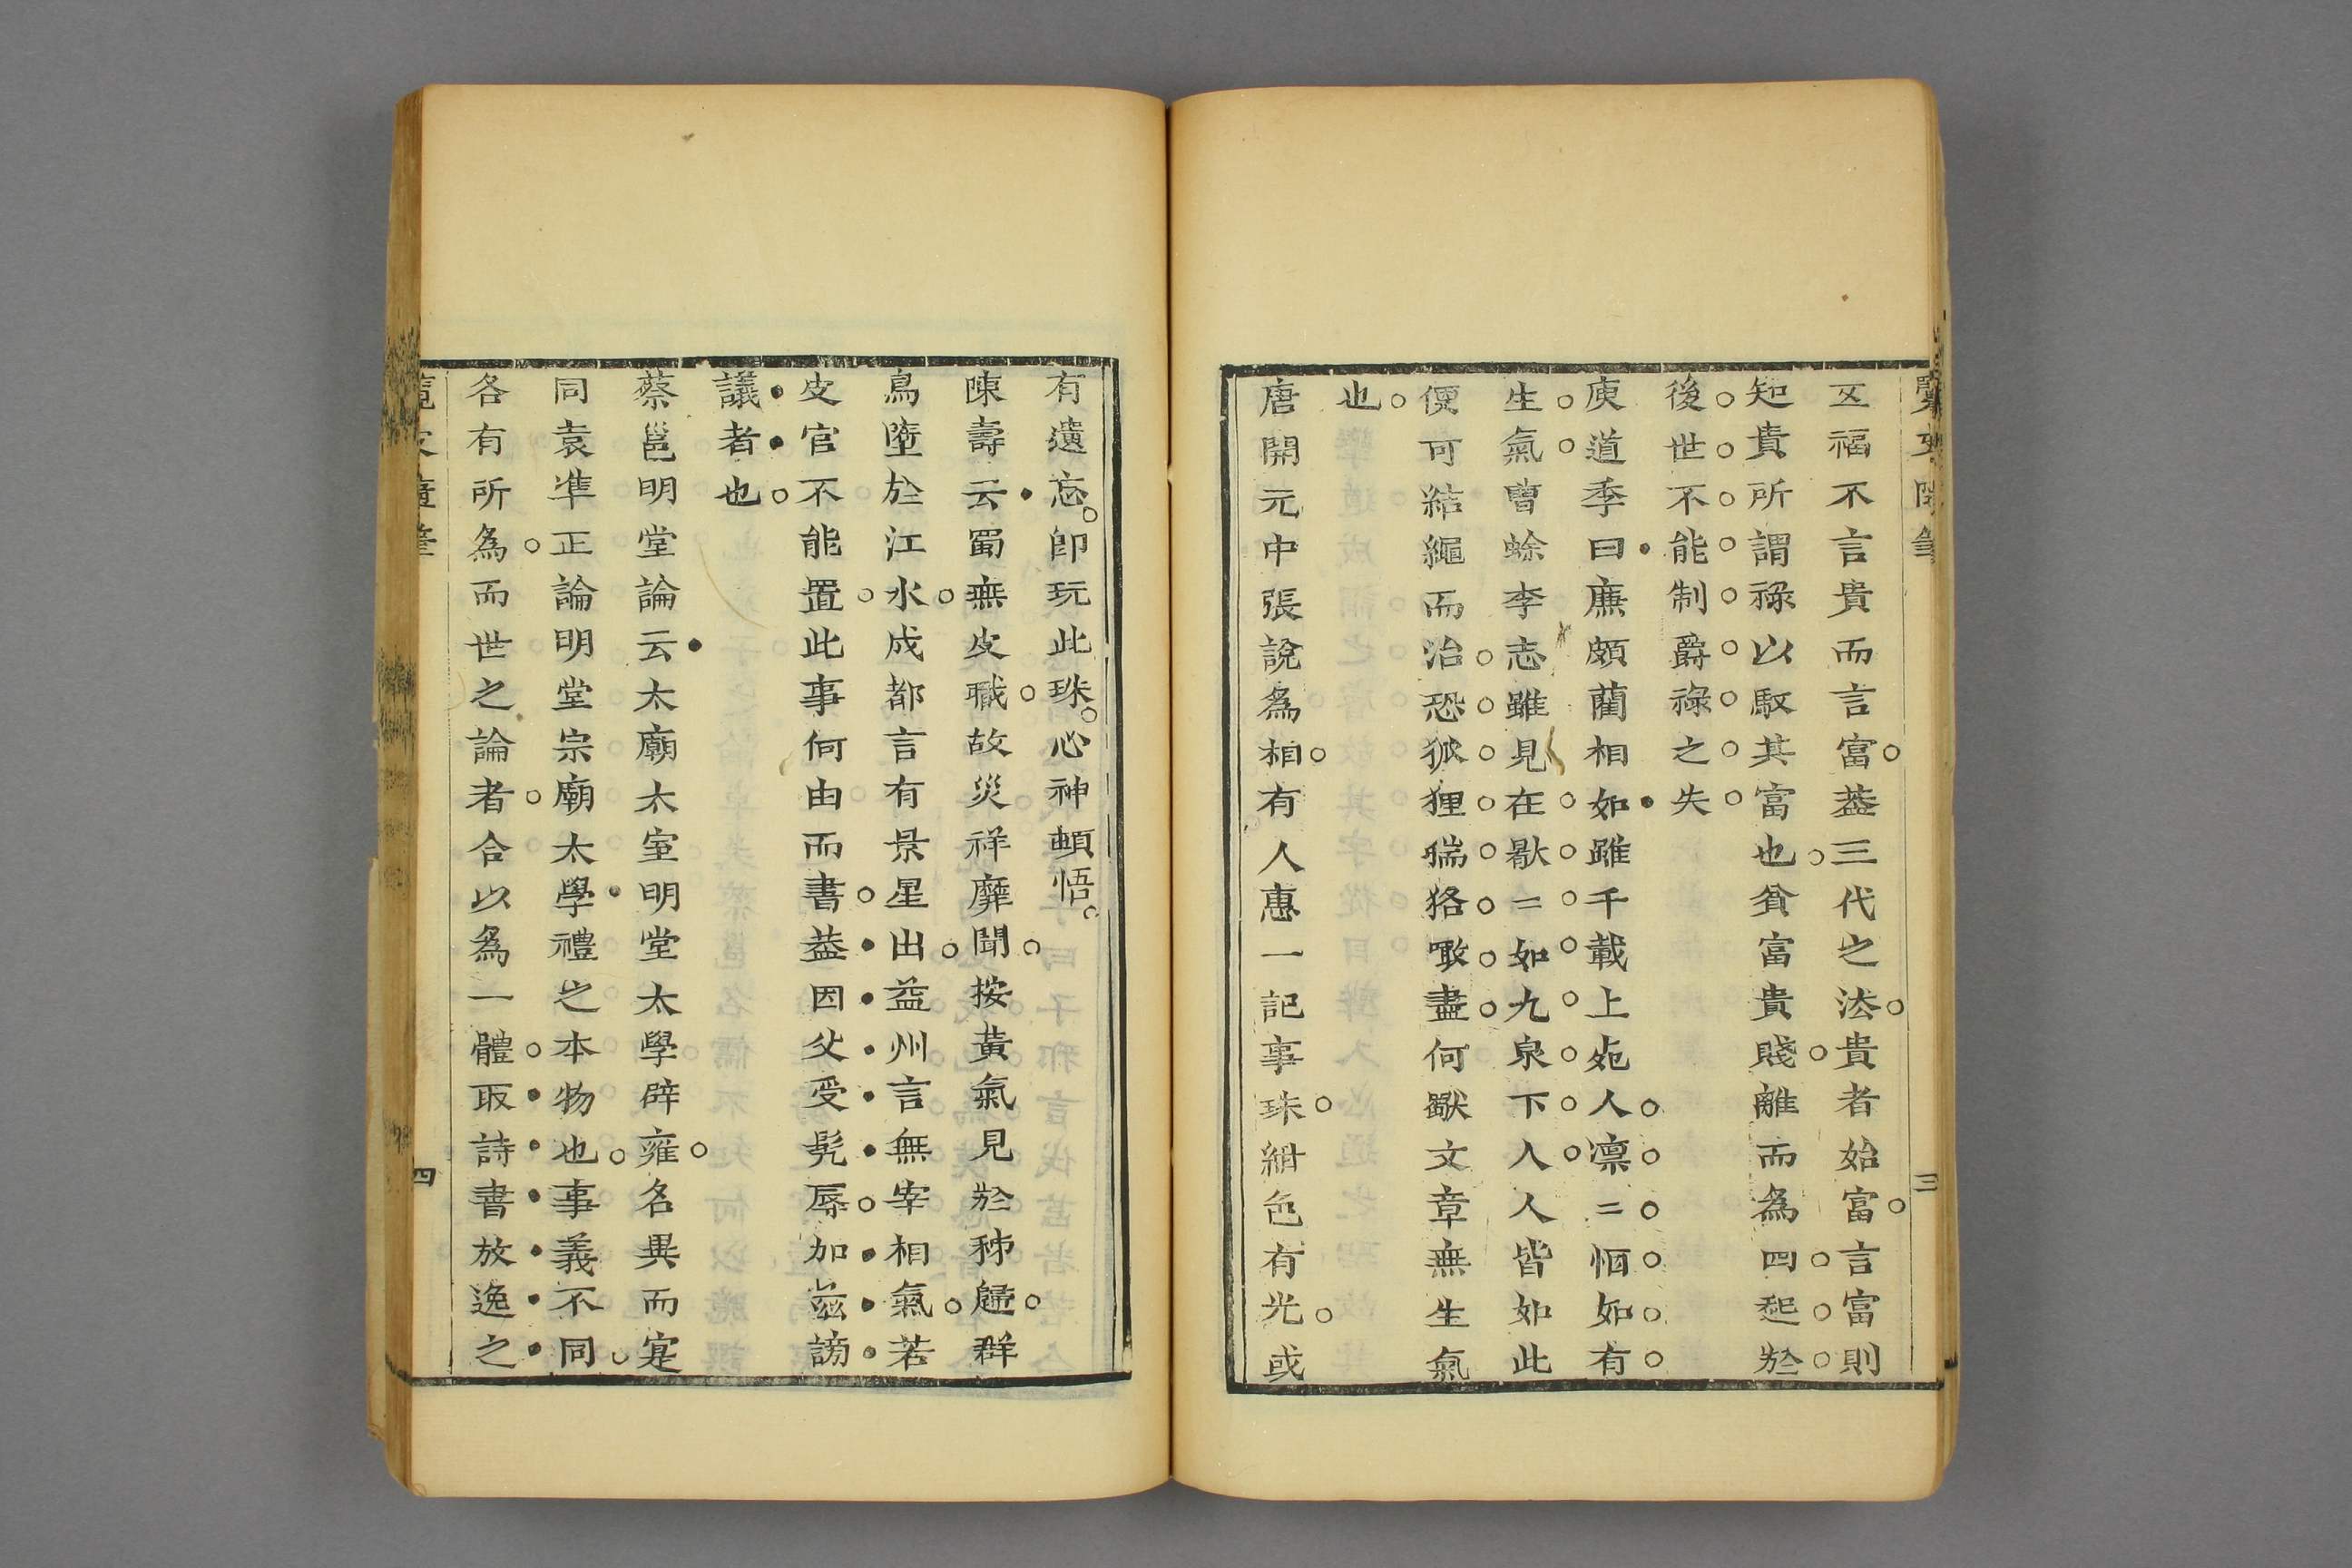 五福不言貴而言富葢三代之法貴者始富言富則
知貴所謂祿以馭其富也貧富貴賤離而為四起於
後世不能制爵祿之失
庾道季曰廉頗藺相如雖千載上死人凛〻恒如有
生氣曹蜍李志雖見在猒〻如九泉下人人皆如此
便可結繩而治恐狐狸猯狢噉盡何獸文章無生氣
也
唐開元中張說為相有人惠一記事珠紺色有光或
三
有遺忘卽玩此珠心神頓悟
陳壽云蜀無史職故災祥靡聞按黃氣見於秭歸群
鳥墮於江水成都言有景星出益州言無宰相氣若
史官不能置此事何由而書葢因父受髡辱加茲謗
議者也
蔡邕明堂論云太廟太室明堂太學辟雍名異而寔
同袁準正論明堂宗廟太學禮之本物也事義不同
各有所為而世之論者合以為一體取詩書放逸之
四